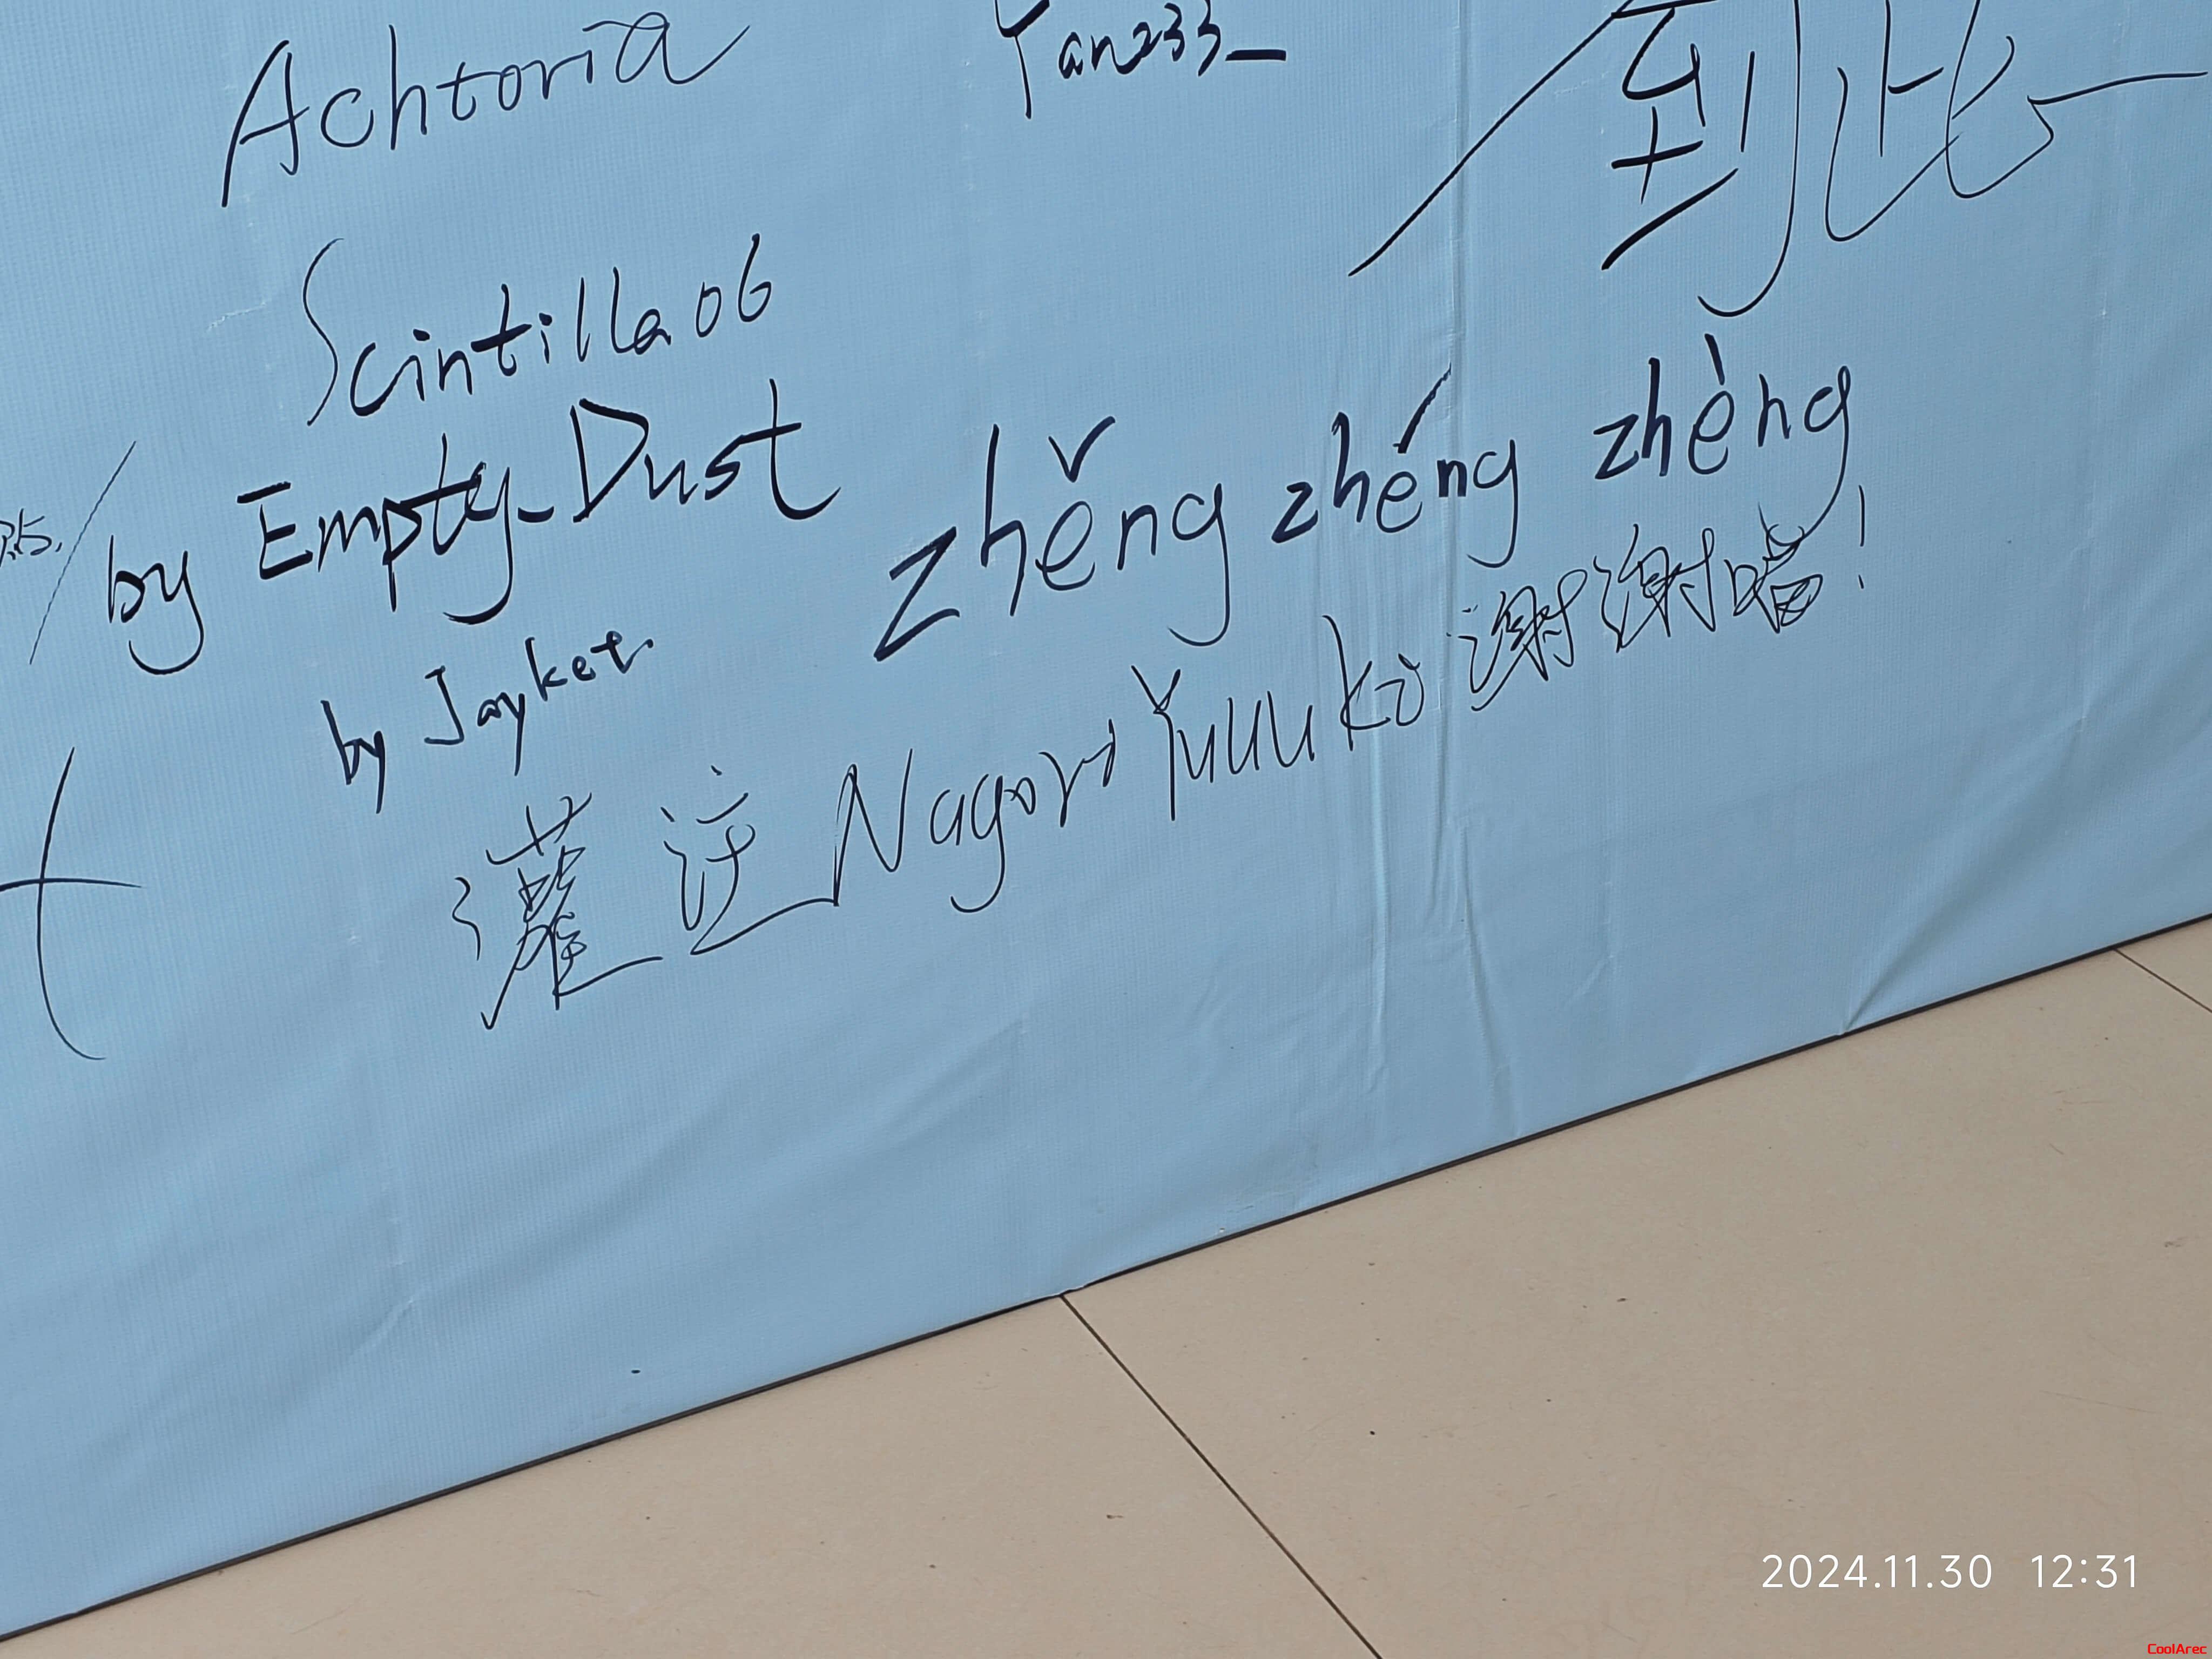 Achtoria
Yan233_
到此
Scintilla06
by Empty_Dust
zhěng zhéng zhèng
by Jayket.
灌注 Nagori Yuuuko 谢谢喵!
2024.11.30 12:31
CoolArec